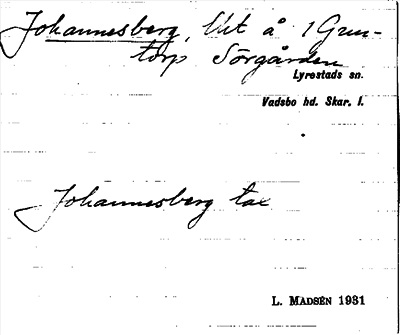 Johannesberg, lht å 1 Grun-
torp Sörgården
Lyrestads sn.
Vadsbo hd. Skar. l.
Johannesberg tax
L. MADSÉN 1931